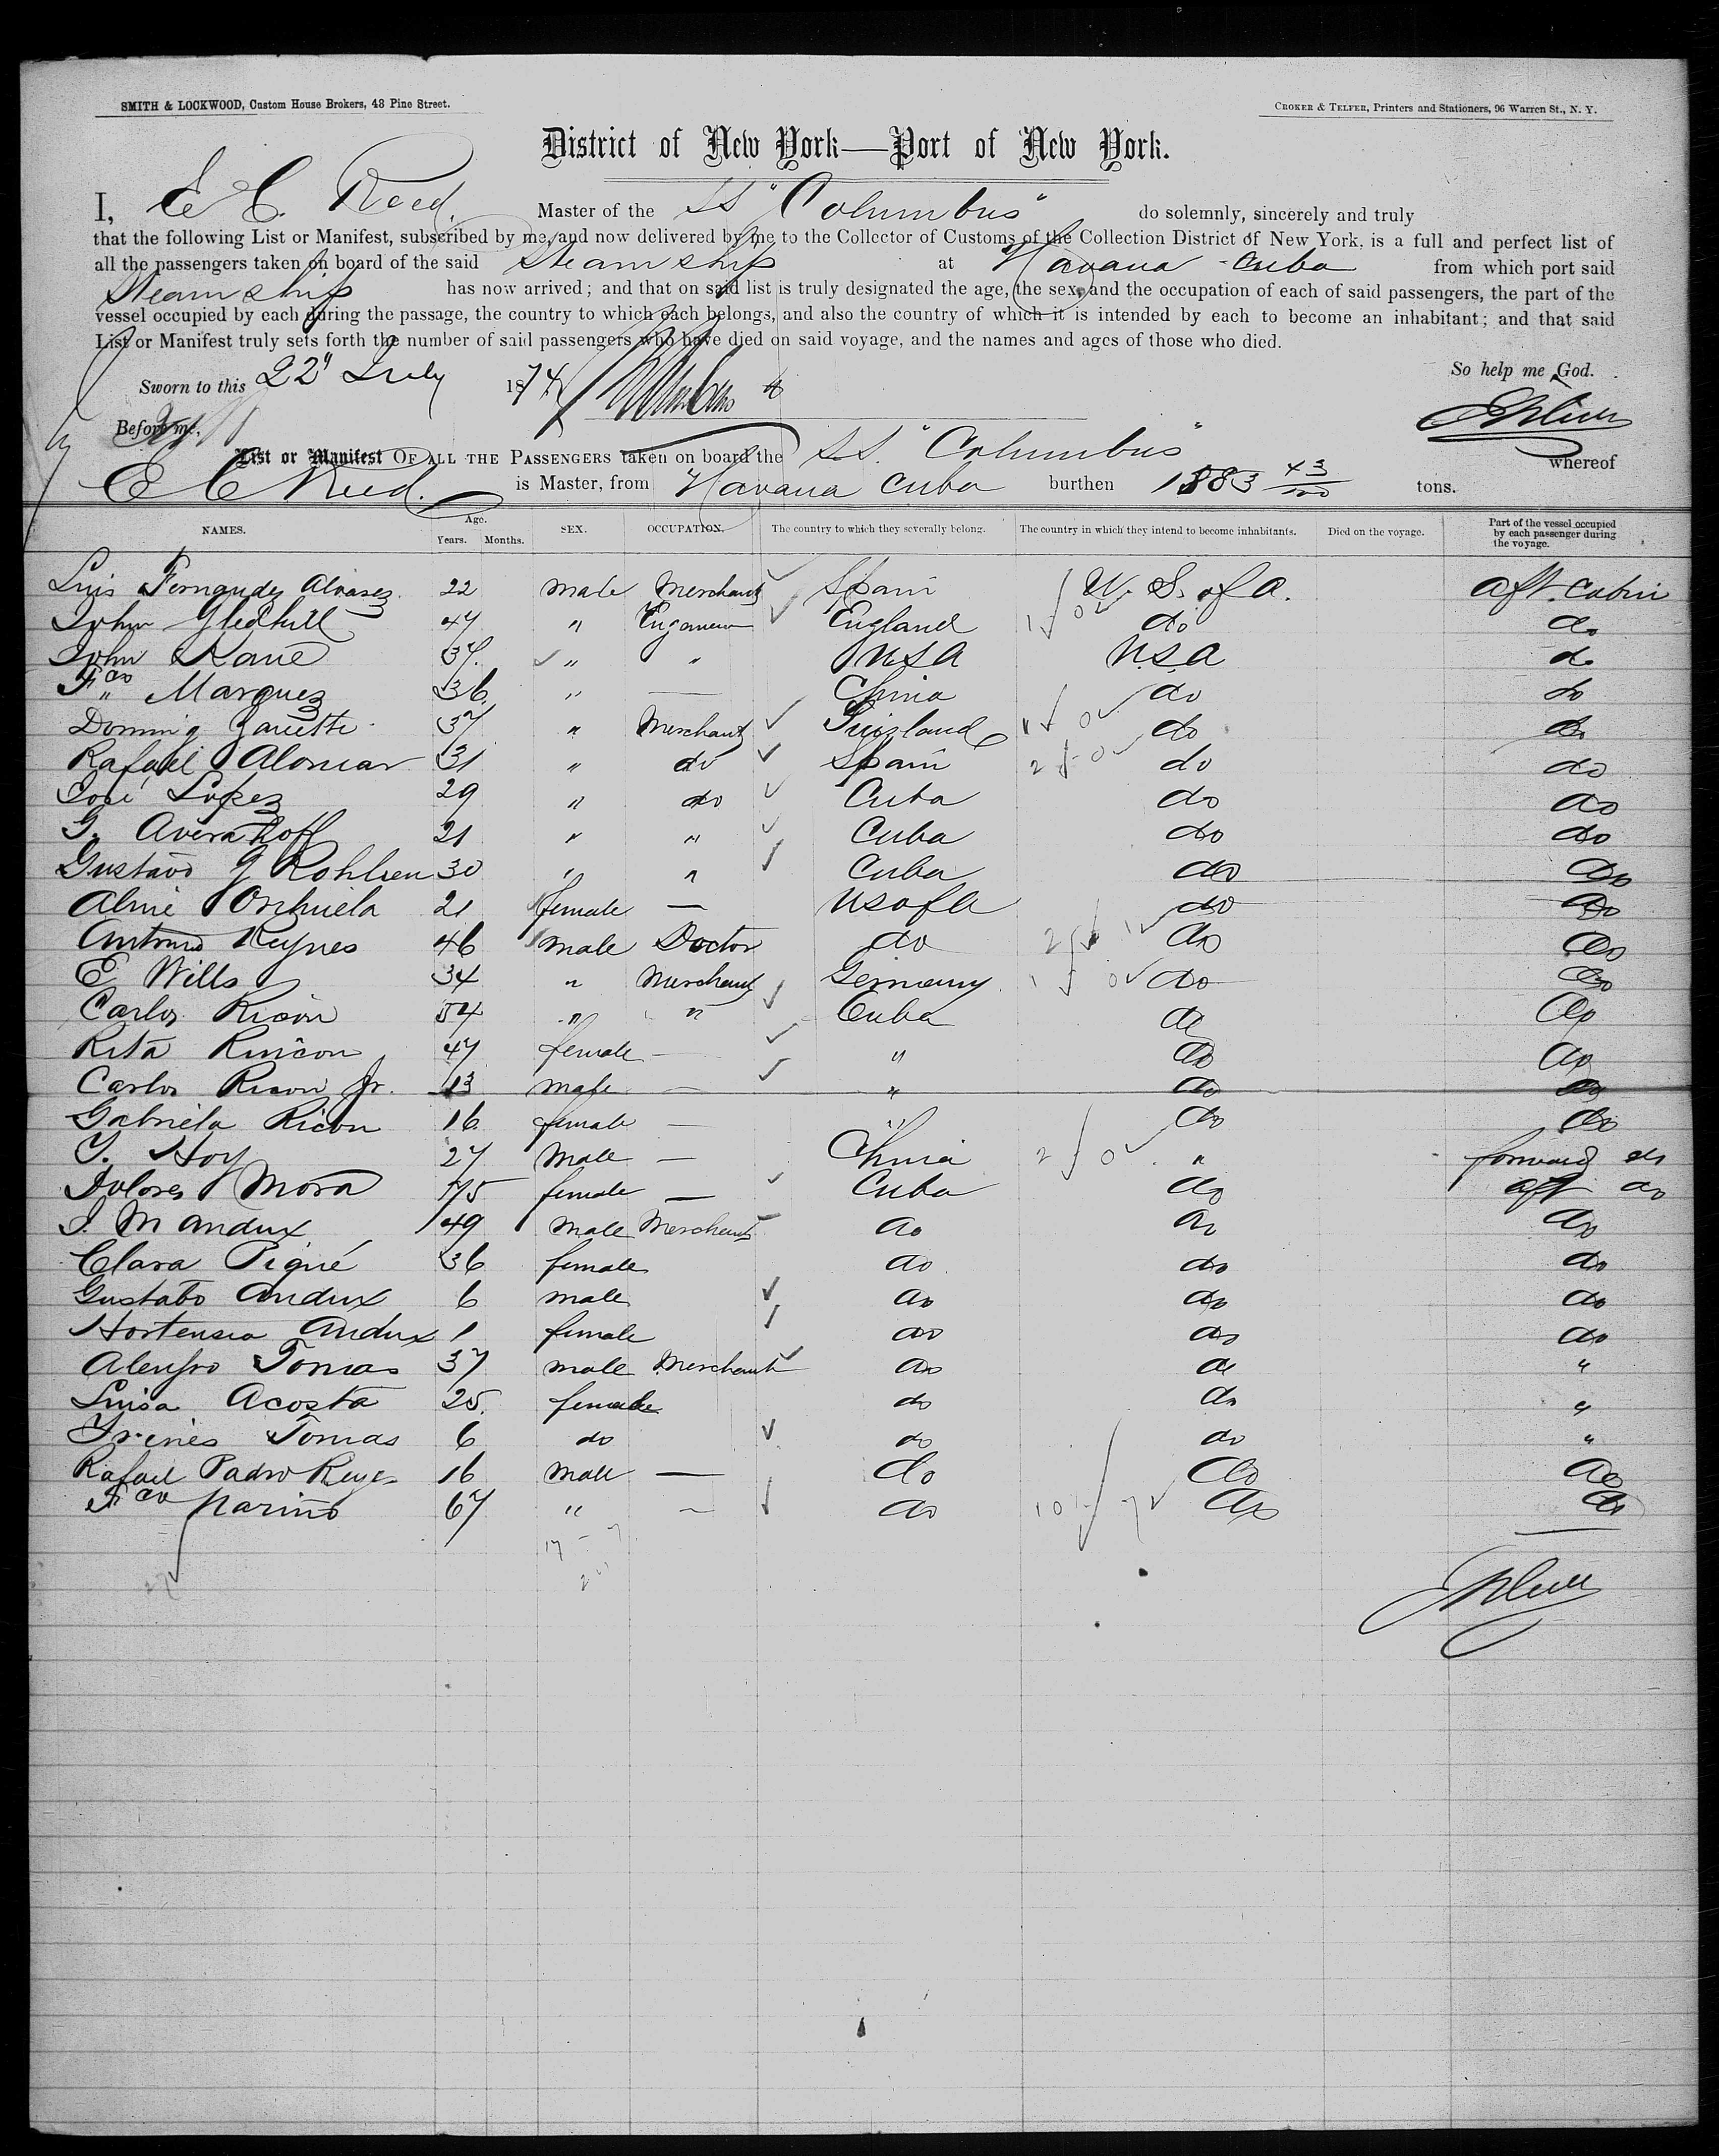 SMITH & LOCKWOOD, Custom House Brokers, 48 Pine Street. CROKER & TELFER, Printers and Stationers, 96 Warren St., N. Y.
District of New York—Port of New York.
I, E C. Reed. Master of the SS "Columbus" do solemnly, sincerely and truly
that the following List or Manifest, subscribed by me, and now delivered by me to the Collector of Customs of the Collection District of New York, is a full and perfect list of
all the passengers taken on board of the said Steamship at Havana - Cuba from which port said
Steamship has now arrived; and that on said list is truly designated the age, the sex, and the occupation of each of said passengers, the part of the
vessel occupied by each during the passage, the country to which each belongs, and also the country of which it is intended by each to become an inhabitant; and that said
List or Manifest truly sets forth the number of said passengers who have died on said voyage, and the names and ages of those who died.
So help me God.
Sworn to this 22" July 1874
Before me,
List or Manifest OF ALL THE PASSENGERS taken on board the SS. "Columbus" whereof
E C Reed. is Master, from Havana Cuba burthen 1883 43/100 tons.
NAMES. Age. Years. Months. SEX. OCCUPATION. The country to which they severally belong. The country in which they intend to become inhabitants. Died on the voyage. Part of the vessel occupied by each passenger during the voyage.
Luis Fernandez Alvarez 22 male Merchant Spain U. S. of A. aft. Cabin
John Gledhill 47 " England do do
John Kane 37. " " USA U.S.A do
Fco " Marquez 36 " — China do do
37 " Merchant do do
Rafael Alomar 31 " do Spain do do
José Lopez 29 " do Cuba do do
G. Averahoff 21 " " Cuba do do
Gustavo G Rohlsen 30 " " Cuba do do
21 female — US of A do do
Antonio Reynes 46 male Doctor do do do
E Wills 34 " Merchant Germany do do
Carlos Ricon 54 " " Cuba do do
Rita Rincon 47 female — " do do
Carlos Ricon Jr. 13 male — " do do
Gabriela Ricon 16 female — " do do
Y. Hoy 27 Male — China " forward do
Dolores Mora female — Cuba do aft do
J. M Andux 49 male Merchant do do do
Clara Piqué 36 female do do do
Gustabo Andux 6 male do do do
Hortensia Andux 1 female do do do
Tomas 37 male Merchant do do "
Luisa Acosta 25. female do do "
Irenes Tomas 6 do do do "
Rafael Padro Reyes 16 male — do do do
Fco Marino 67 " — do do do